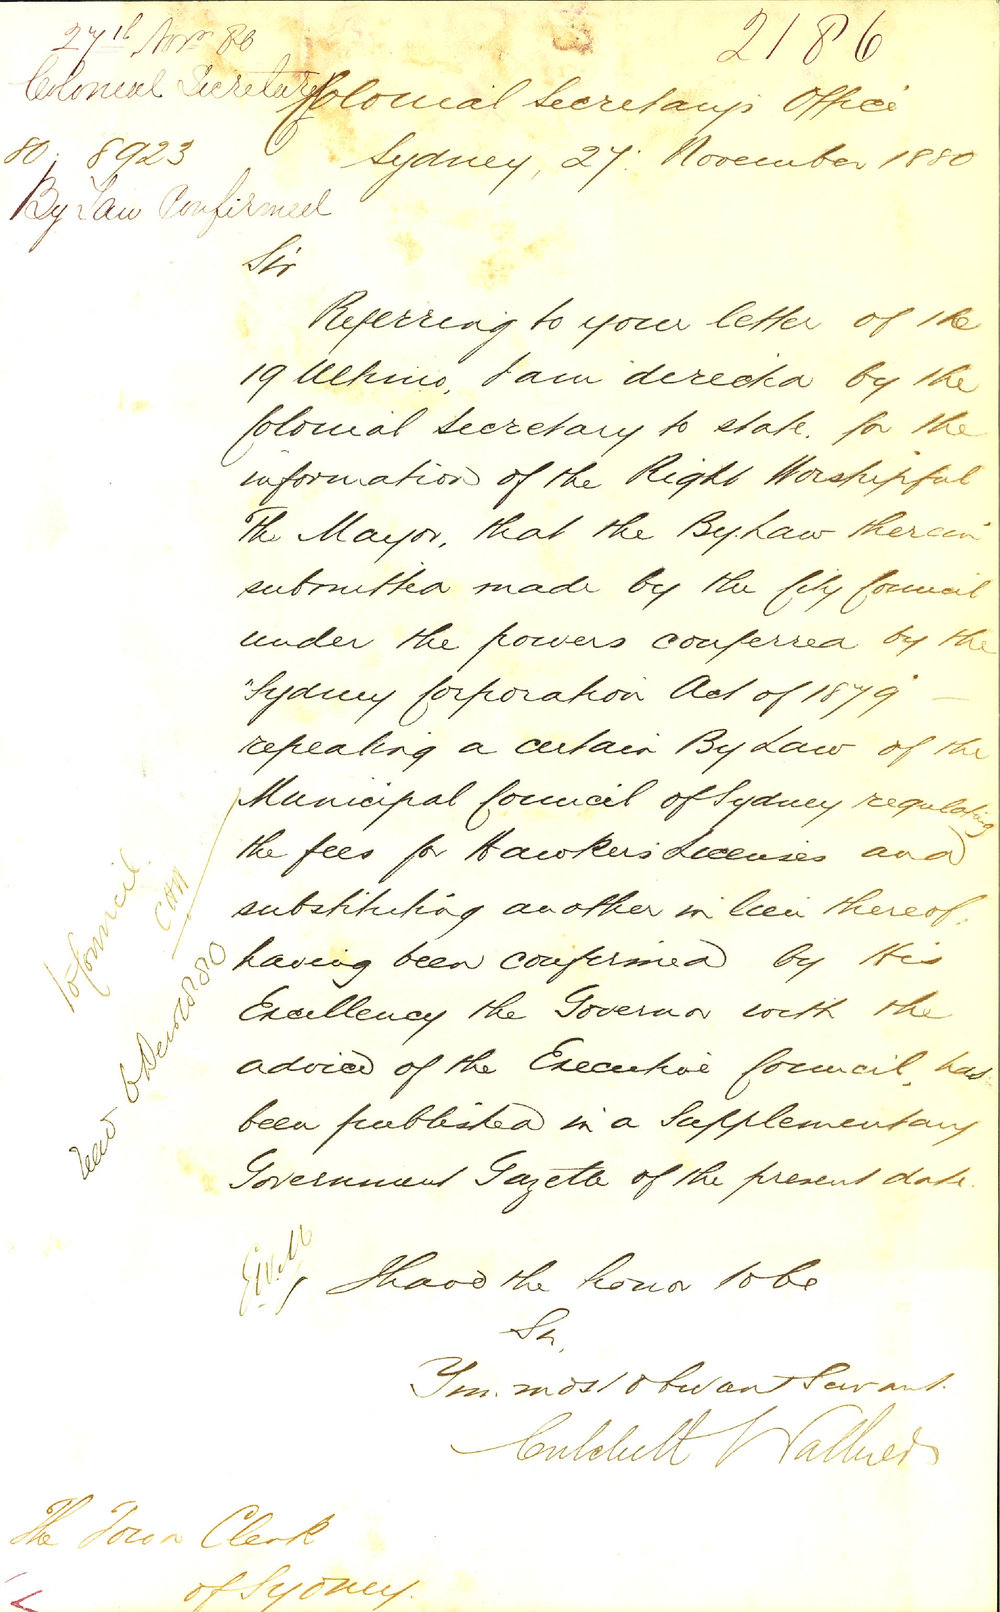 27th Novr 80
2186
Colonial Secretary
Colonial Secretary's Office
80. 8923
Sydney, 27. November 1880
By Law Confirmed
Sir
Referring to your letter of the
19 Ultimo, I am directed by the
Colonial Secretary to state, for the
information of the Right Worshipful
The Mayor, that the By-Law therein
submitted made by the City Council
under the powers conferred by the
"Sydney Corporation Act of 1879" —
repealing a certain By Law of the
Municipal Council of Sydney regulating
the fees for Hawkers' Licenses and
substituting another in lieu thereof,
having been confirmed by His
Excellency the Governor with the
advice of the Executive Council, has
been published in a Supplementary
Government Gazette of the present date.
To Council
I have the honor to be
Sir,
Your most obedient Servant.
Critchett Walker
The Town Clerk
of Sydney.